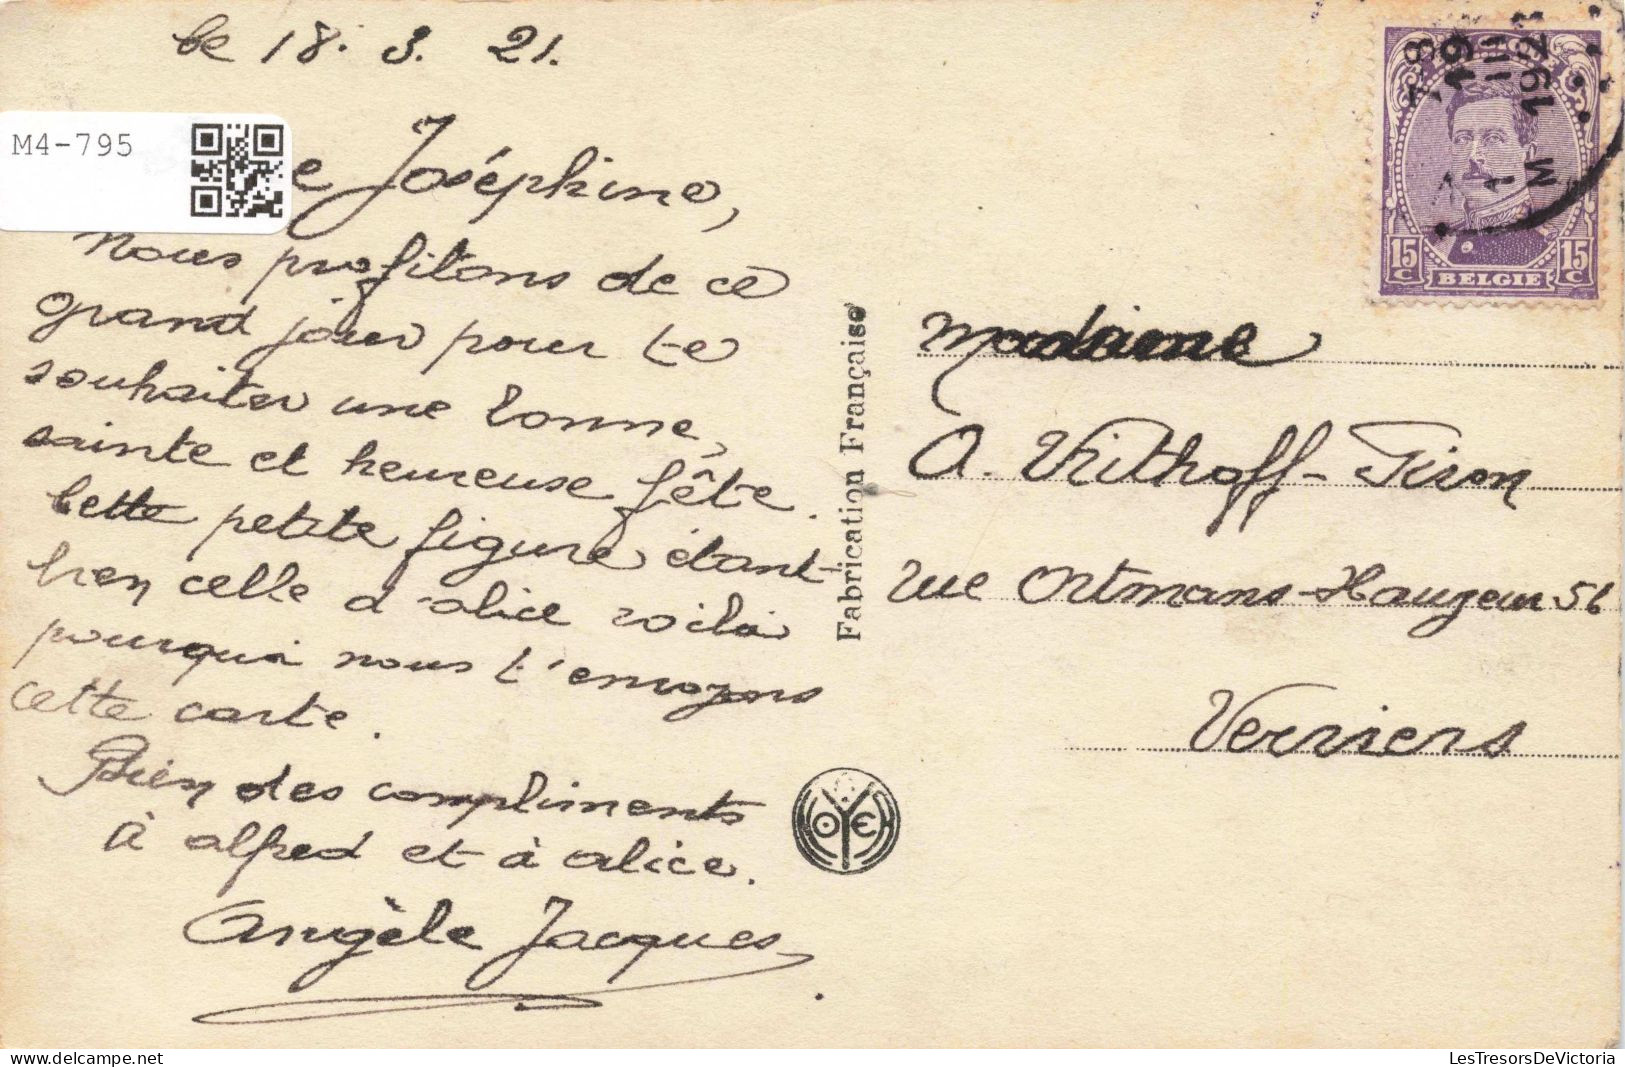 Le 18. 3. 21.
M4-795
e Joséphine,
Nous profitons de ce
grand jour pour te
souhaiter une bonne,
sainte et heureuse fête.
Cette petite figure étant
bien celle d'alice voilà
pourquoi nous t'envoyons
cette carte.
Bien des compliments
à alfred et à alice.
Angèle Jacques
Fabrication Française
NOYER
15 C
15 C
BELGIE
Madame
A. Withoff-Piron
rue Ortmans-Hauzeur 56
Verviers
LesTresorsDeVictoria